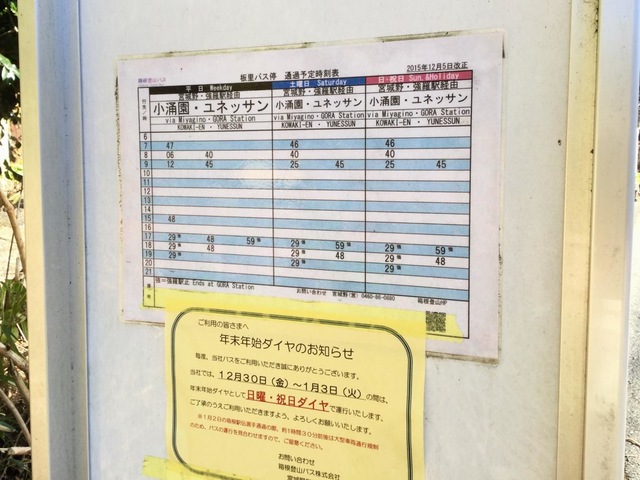 箱根登山バス
板里バス停 通過予定時刻表
2015年12月5日改正
平 日 Weekday 土曜日 Saturday 日・祝日 Sun.&Holiday
宮城野・強羅駅経由 宮城野・強羅駅経由 宮城野・強羅駅経由
小涌園・ユネッサン 小涌園・ユネッサン 小涌園・ユネッサン
via Miyagino・GORA Station via Miyagino・GORA Station via Miyagino・GORA Station
KOWAKI-EN ・ YUNESSUN KOWAKI-EN ・ YUNESSUN KOWAKI-EN ・ YUNESSUN
6
7 47 46 46
8 06 40 40 40
9 12 45 25 45 25 45
10
11
12
13
14
15 48
17 29強 48 59強 29強 59強 29強 48
18 29強 48 29強 48 29強 48
19 29強 29強 29強
20 29強 29強
21
強＝強羅駅止 Ends at GORA Station
お問い合わせ 宮城野(営) 0460-86-0880 箱根登山HP
ご利用の皆さまへ
年末年始ダイヤのお知らせ
毎度、当社バスをご利用いただき誠にありがとうございます。
当社では、12月30日(金)～1月3日(火)の間は、
年末年始ダイヤとして日曜・祝日ダイヤで運行いたします。
ご了承のうえご利用いただきますよう、よろしくお願いいたします。
※1月2日の箱根駅伝選手通過の際、約1時間30分前後は大型車両通行規制
のため、バスの運行を見合わせますので、ご留意ください。
お問い合わせ
箱根登山バス株式会社